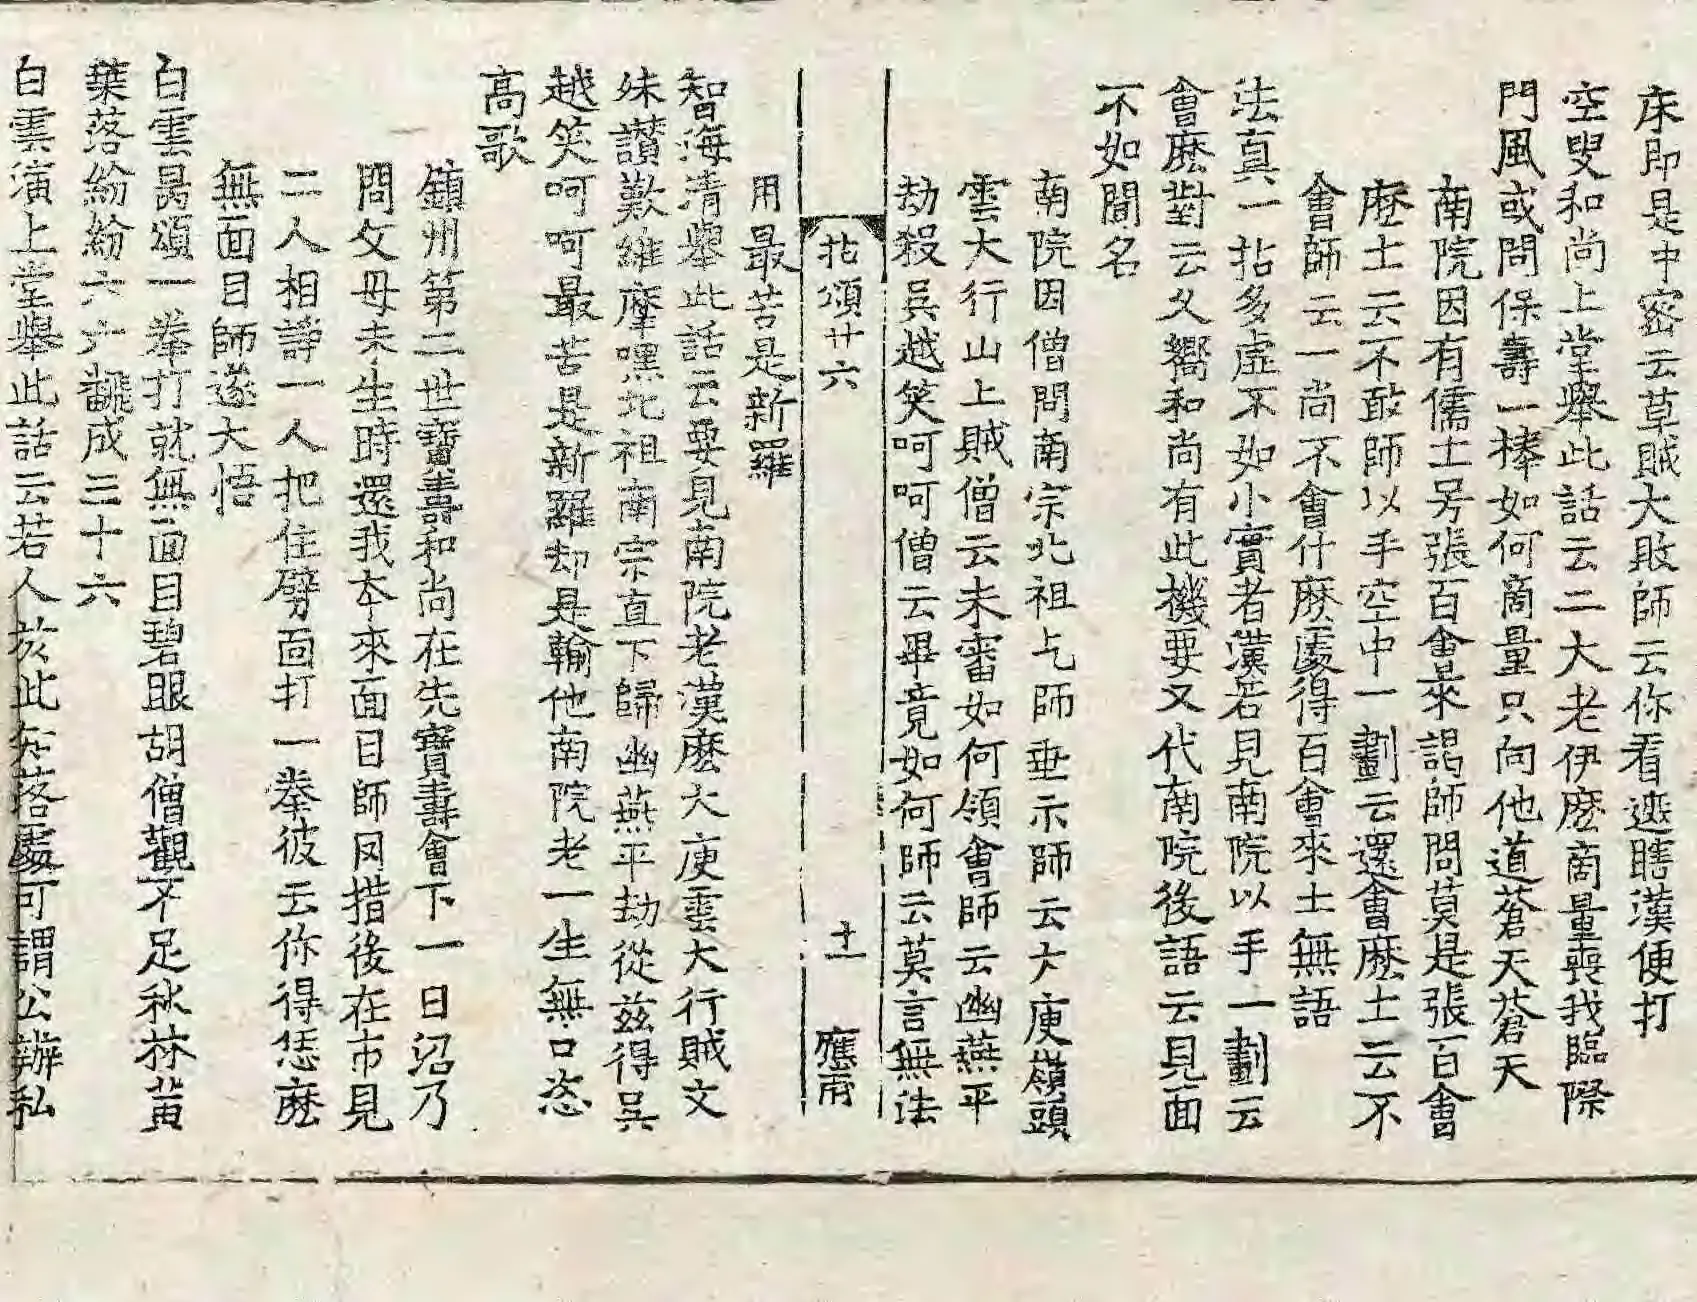 床即是中密云草賊大敗師云你看遮瞎漢便打
空叟和尚上堂舉此話云二大老伊麽商量喪我臨際
門風或問保壽一棒如何商量只向他道蒼天蒼天
南院因有儒士号張百會來謁師問莫是張百會
麽士云不敢師以手空中一劃云還會麽士云不
會師云一尚不會什麽處得百會來士無語
法真一拈多虛不如小實者漢若見南院以手一劃云
會麽對云久嚮和尚有此機要又代南院後語云見面
不如聞名
南院因僧問南宗北祖乞師垂示師云大庾嶺頭
雲大行山上賊僧云未審如何領會師云幽燕平
劫殺吳越笑呵呵僧云畢竟如何師云莫言無法
拈頌廿六 十一 應甫
用最苦是新羅
智海清舉此話云要見南院老漢麽大庾雲大行賊文
殊讃歎維摩嘿北祖南宗直下歸幽燕平劫從玆得吳
越笑呵呵最苦是新羅却是輸他南院老一生無口恣
高歌
鎮州第二世寶壽和尚在先寶壽會下一日沼乃
問父母未生時還我夲來面目師罔措後在市見
二人相諍一人把住劈面打一拳彼云你得恁麽
無面目師遂大悟
白雲昺頌一拳打就無面目碧眼胡僧觀不足秋林黃
葉落紛紛六六飜成三十六
白雲演上堂舉此話云若人於此知落處可謂公辦私